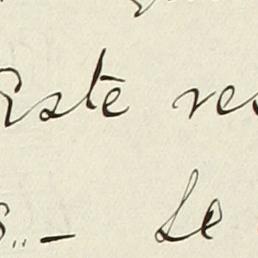 Este res
s.. — Le